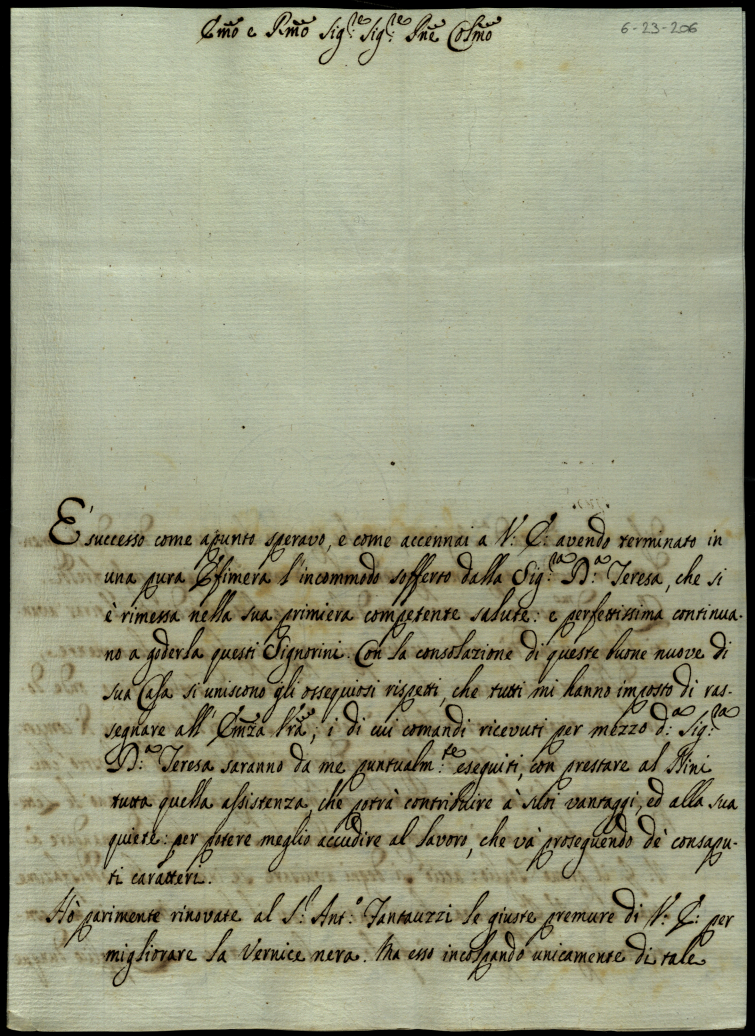 Em̃o e Rm̃o Sig:re Sig:re Pñe Colm̃o
6-23-206
E' successo come apunto speravo, e come accennai a V: E: avendo terminato in
una pura Efimera l'incommodo sofferto dalla Sig:ra D:a Teresa, che si
è rimessa nella sua primiera competente salute: e perfettissima continua-
no a goderla questi Signorini. Con la consolazione di queste buone nuove di
sua Casa si uniscono gli ossequiosi rispetti, che tutti mi hanno imposto di ras-
segnare all'Em̃za Vrã; i di cui comandi ricevuti per mezzo d:a Sig:ra
D:a Teresa saranno da me puntualm:te eseguiti, con prestare al Pini
tutta quella assistenza, che potrà contribuire à suoi vantaggi, ed alla sua
quiete: per potere meglio accudire al lavoro, che và proseguendo de' consapu-
ti caratteri.
Hò parimente rinovate al S:r Ant:o Fantauzzi le giuste premure di V: E: per
migliorare la Vernice nera. Ma esso incolpando unicamente di tale